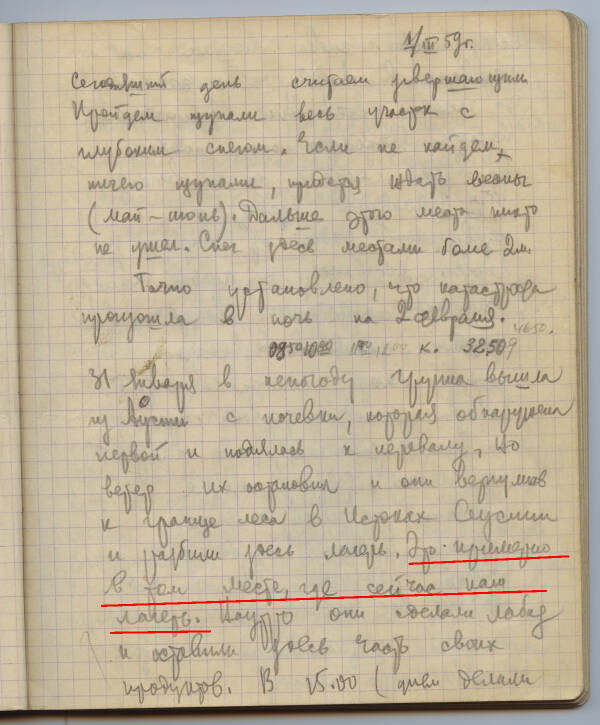 1/III 59г.
день считаем завершающим.
Пройдем щупами весь участок с
глубоким снегом. Если не найдем
ничего щупами, придется ждать весны
(май – июнь). Дальше этого места никто
не ушел. Снег здесь местами более 2 м.
Точно установлено, что катастрофа
произошла в ночь на 2 февраля.
4650.
к. 32509
31 января в непогоду группа вышла
из Ауспии с ночевки, которая обнаружена
первой и поднялась к перевалу, но
ветер их остановил и они вернулись
к границе леса в Истоках Ауспии
и разбили здесь лагерь. Это примерно
в том месте, где сейчас наш
лагерь. они сделали лабаз
и оставили здесь часть своих
продуктов. В 15.00 (днем делали